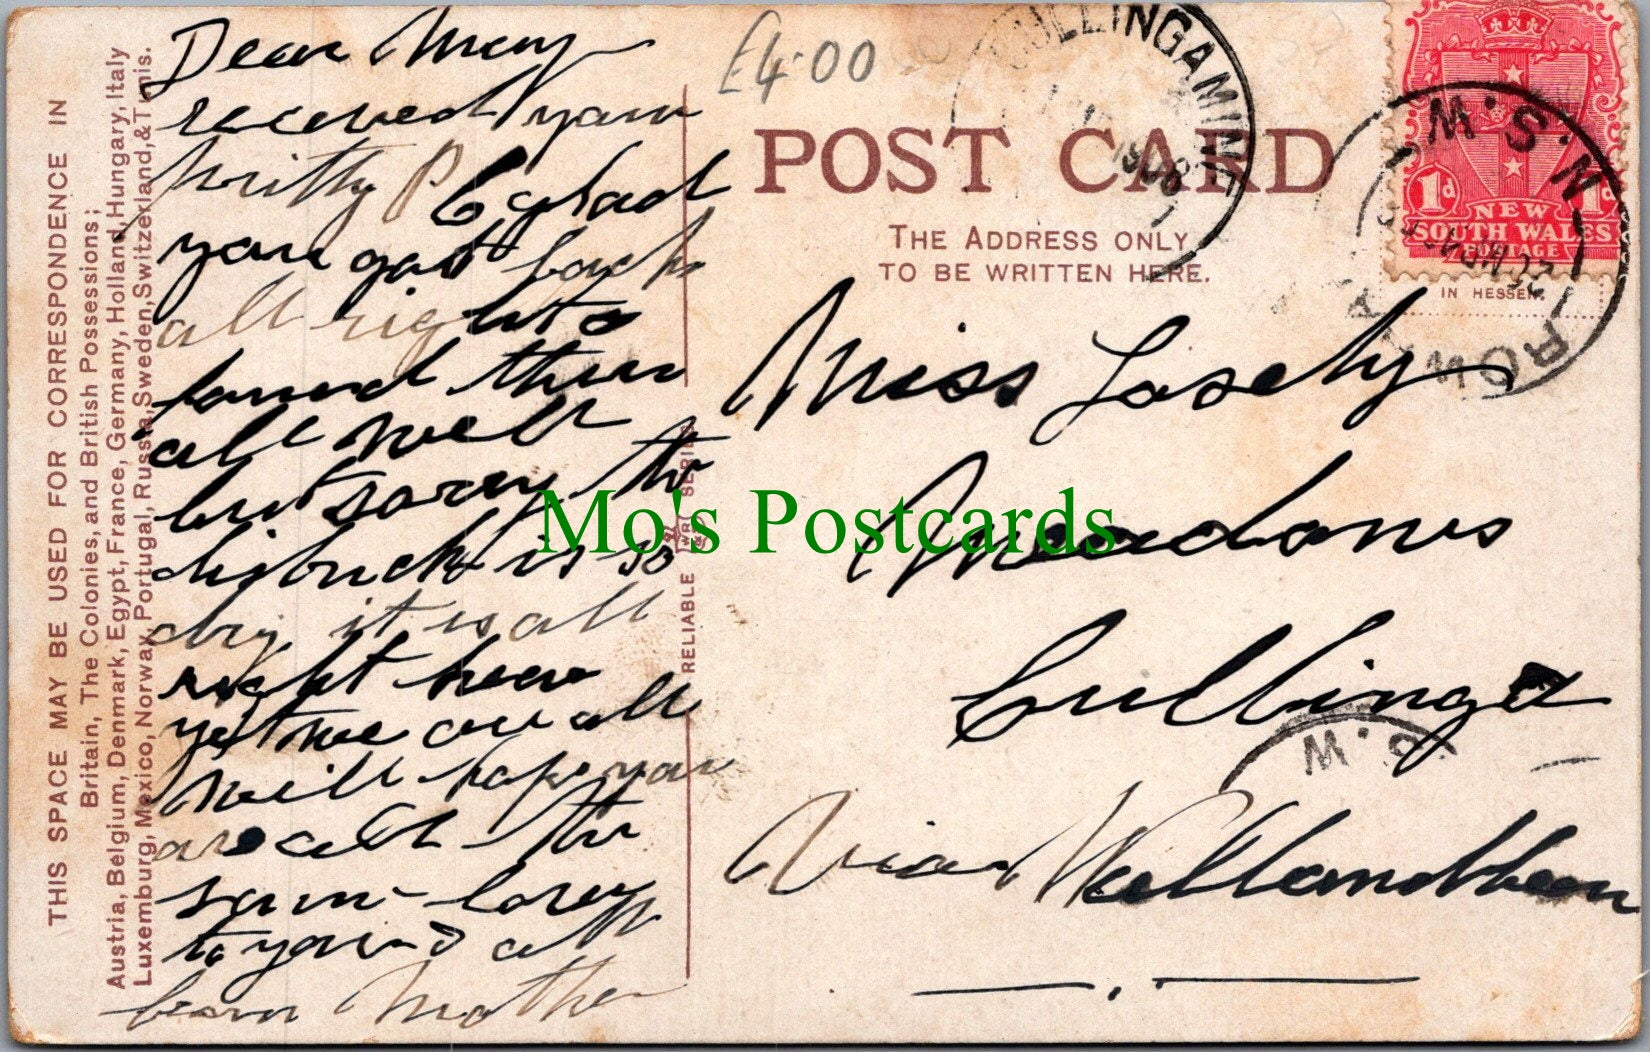 THIS SPACE MAY BE USED FOR CORRESPONDENCE IN
Britain, The Colonies, and British Possessions;
Austria, Belgium, Denmark, Egypt, France, Germany, Holland, Hungary, Italy
Luxemburg, Mexico, Norway, Portugal, Russia, Sweden, Switzerland, & Tunis.
Dear May
received your
pretty P C glad
you got back
all right &
found them
all well
but sorry the
district is so
dry it is all
right here
yet we are all
well hope you
are all the
same love
to you & all
from Mother
£4.00
RELIABLE
WR & S
SERIES
POST CARD
THE ADDRESS ONLY
TO BE WRITTEN HERE.
CULLINGA MINE
1d 1d
NEW
SOUTH WALES
POSTAGE
N.S.W.
IN HESSEN.
Miss Losely
Meadows
Cullinga
Via Wallandbeen
S.W
Mo's Postcards